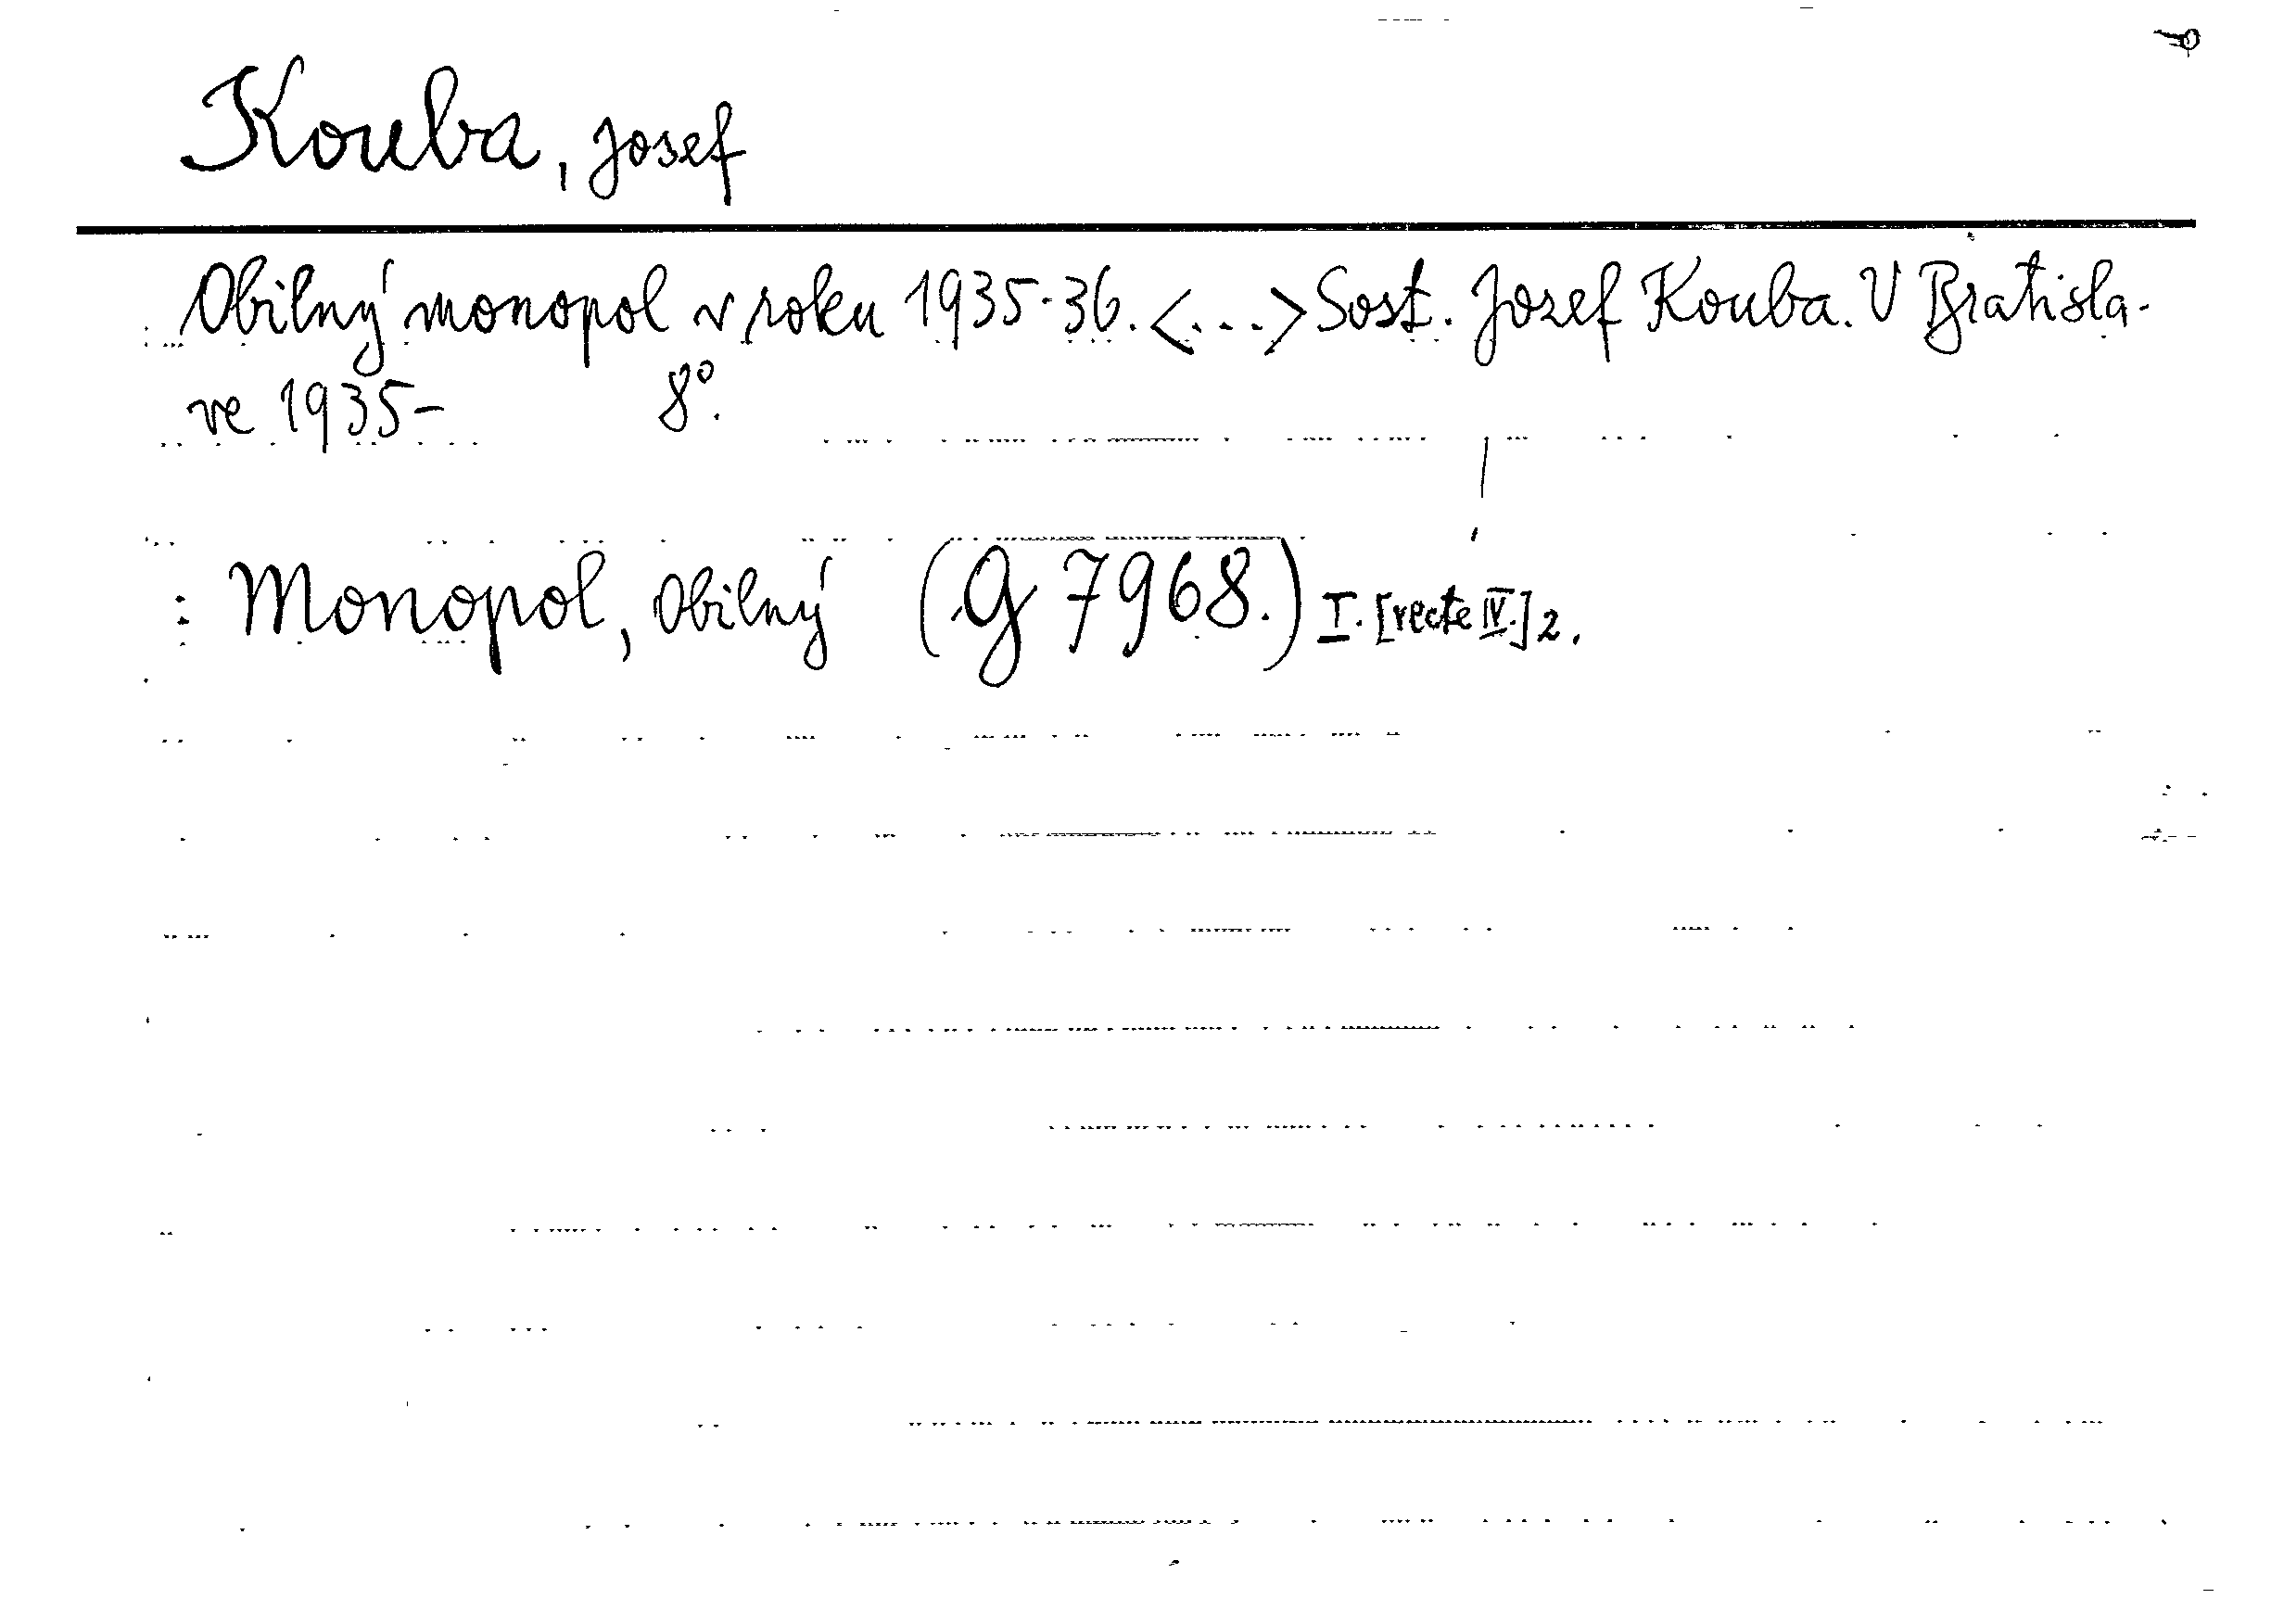 Kouba, Josef
Obilný monopol v roku 1935-36. <...> Sost. Jozef Kouba. V Bratisla-
ve 1935- 8°.
: Monopol, Obilný (G 7968.) I. [recte IV.] 2.